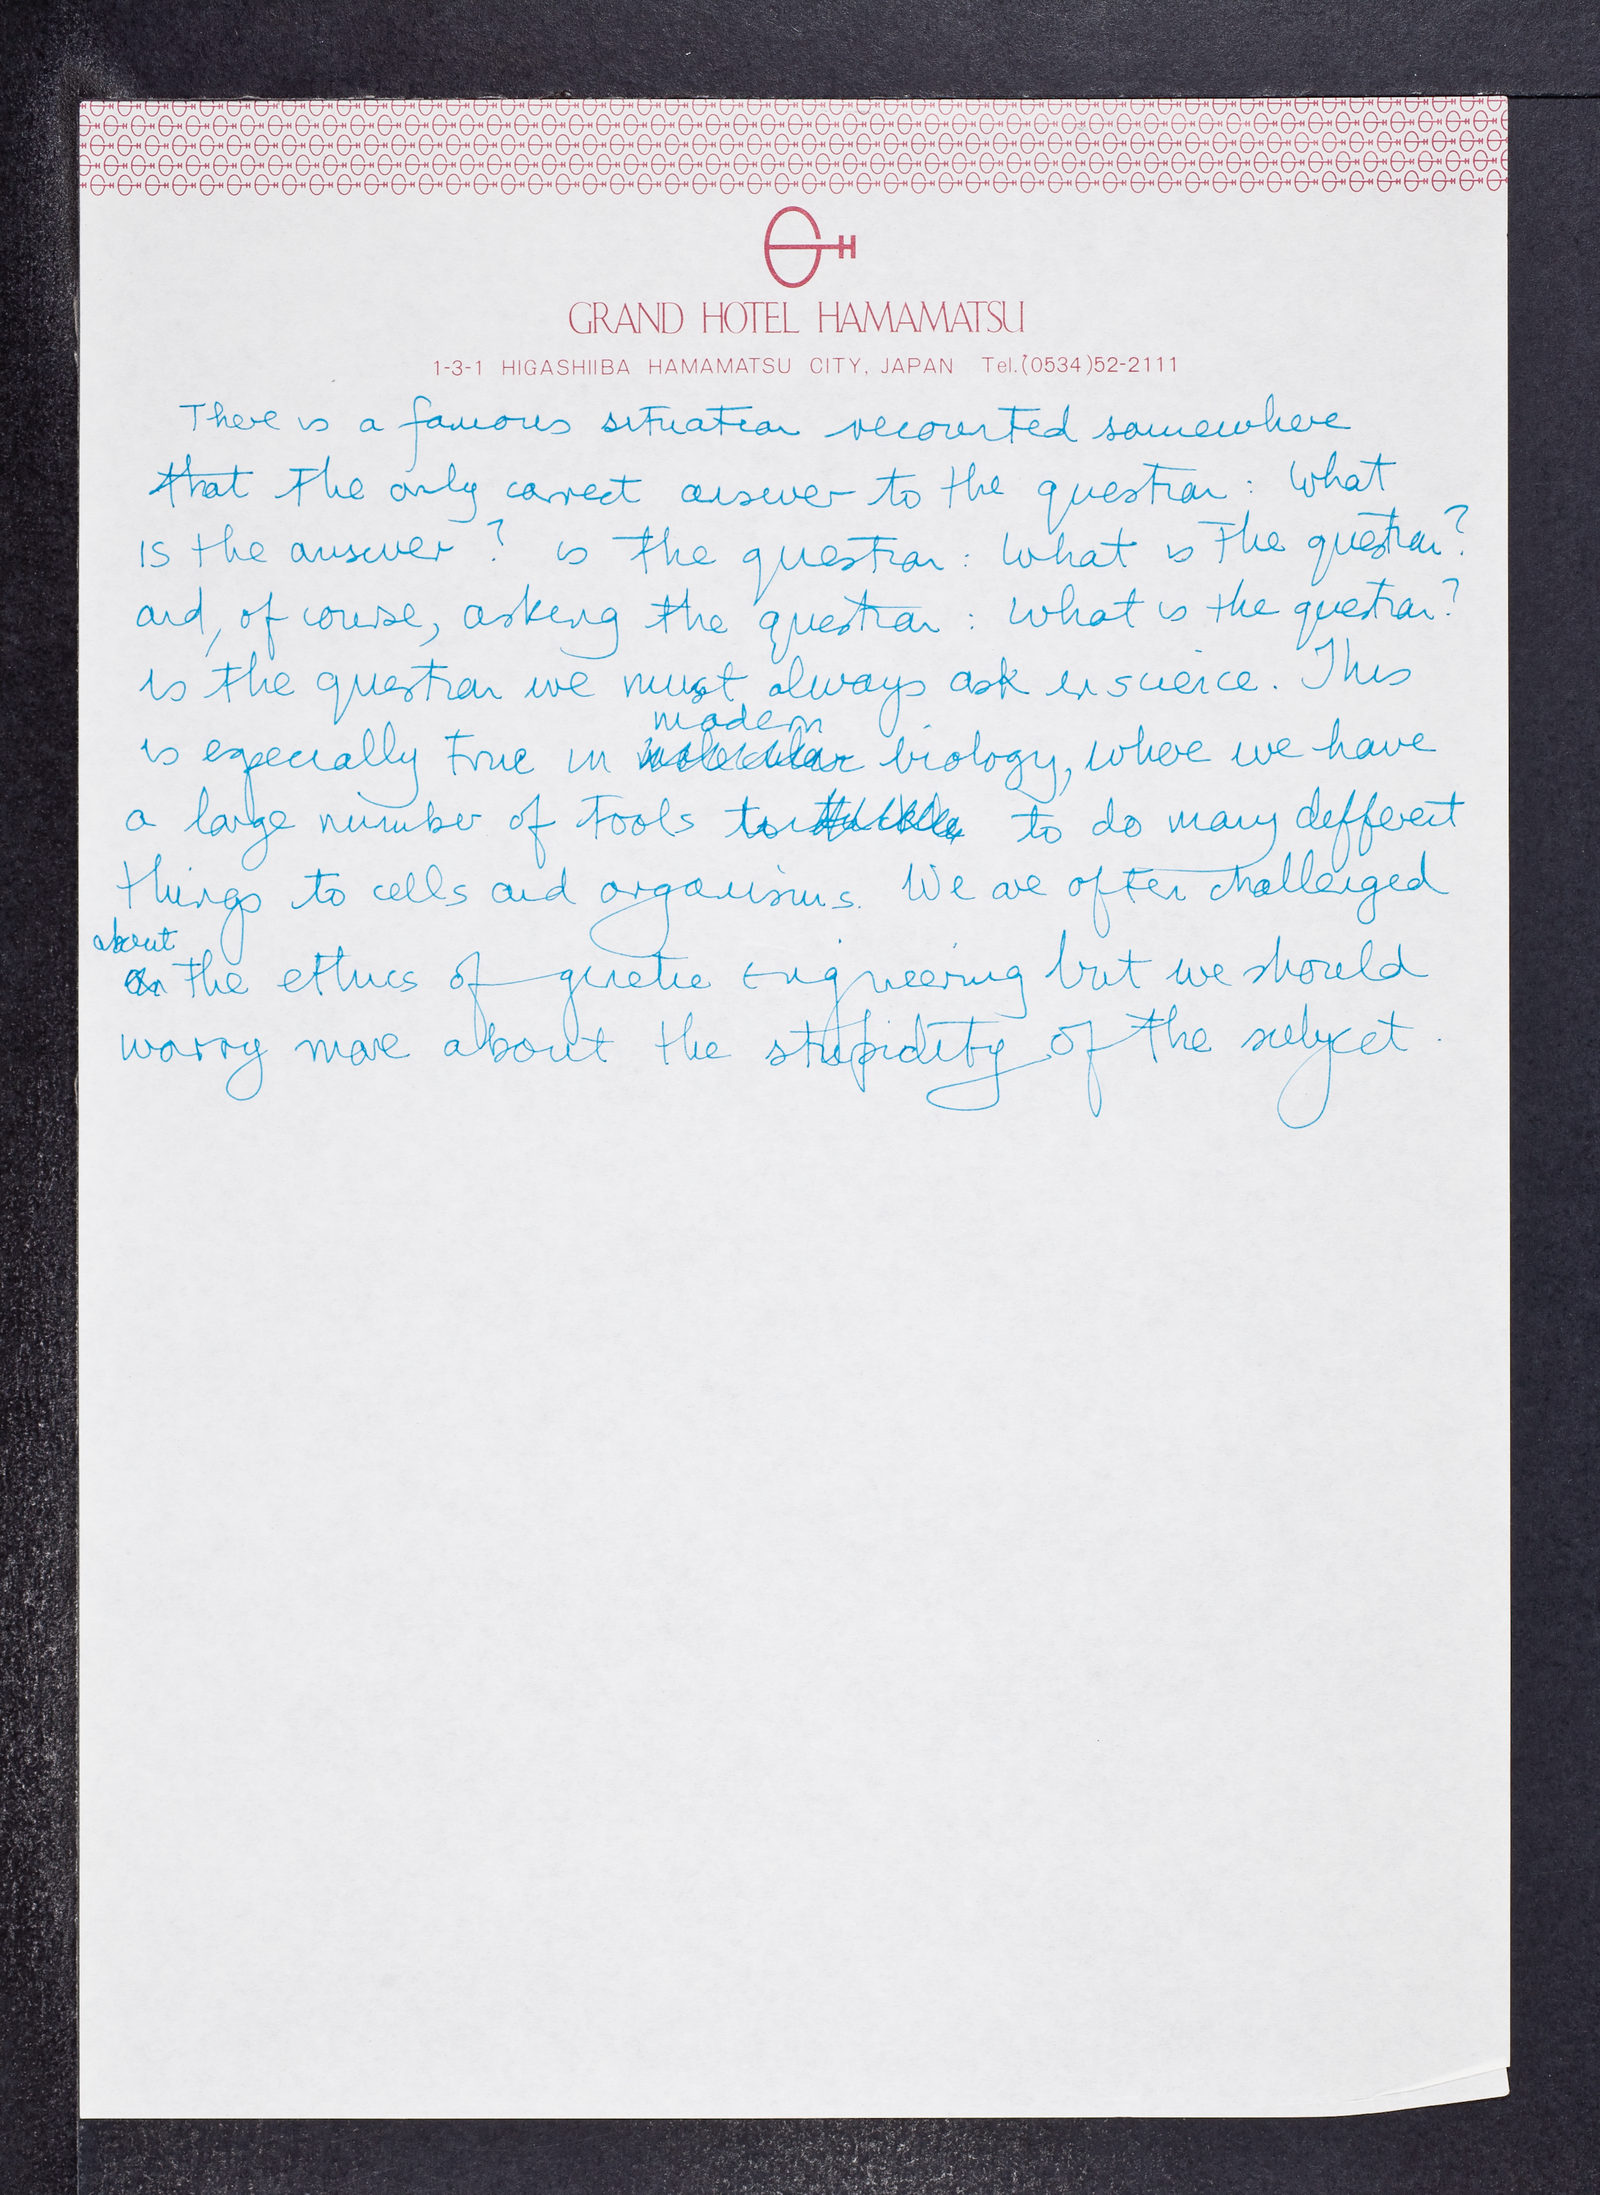 GRAND HOTEL HAMAMATSU
1-3-1 HIGASHIIBA HAMAMATSU CITY, JAPAN Tel.(0534)52-2111
There is a famous situation recounted somewhere
that the only correct answer to the question: What
is the answer? is the question: What is the question?
and, of course, asking the question: What is the question?
is the question we must always ask in science. This
modern
is especially true in molecular biology, where we have
a large number of tools to to do many different
things to cells and organisms. We are often challenged
about
on the ethics of genetic engineering but we should
worry more about the stupidity of the subject.